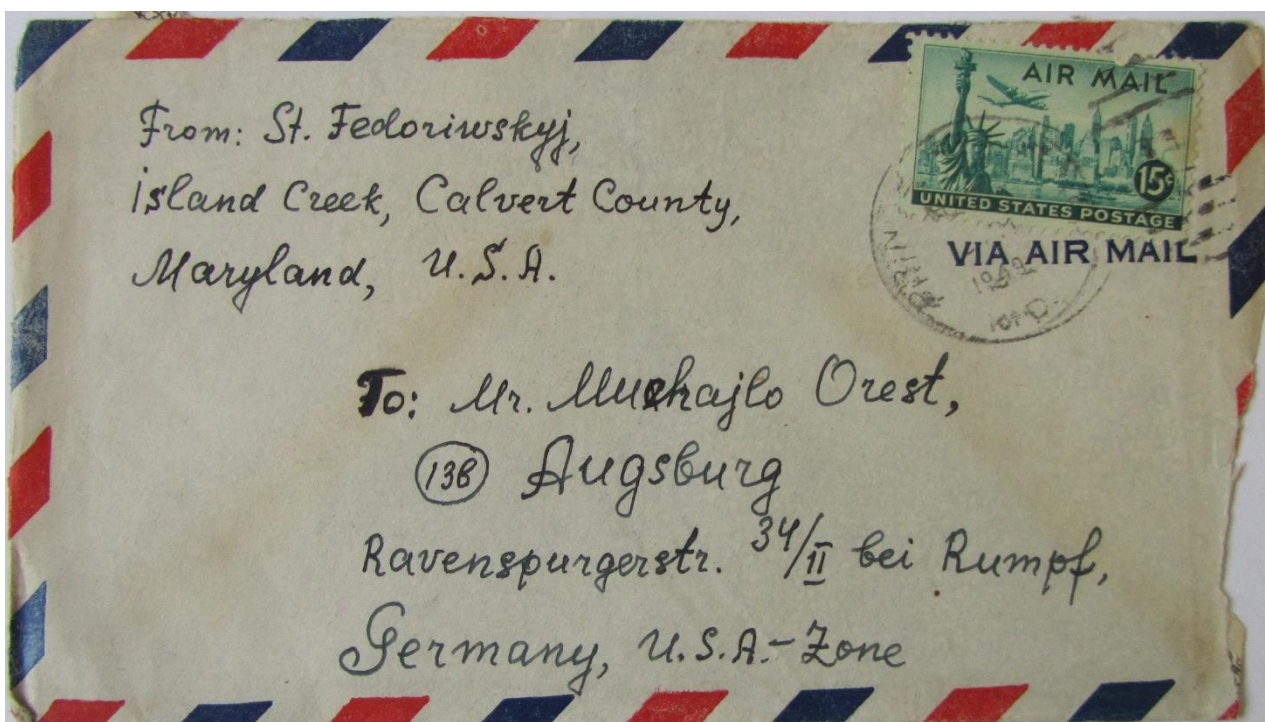 From: St. Fedoriwskyj,
Island Creek, Calvert County,
Maryland, U.S.A.
AIR MAIL
15¢
UNITED STATES POSTAGE
VIA AIR MAIL
1949
To: Mr. Muchajlo Orest,
13b Augsburg
Ravenspurgerstr. 34/II bei Rumpf,
Germany, U.S.A.-Zone